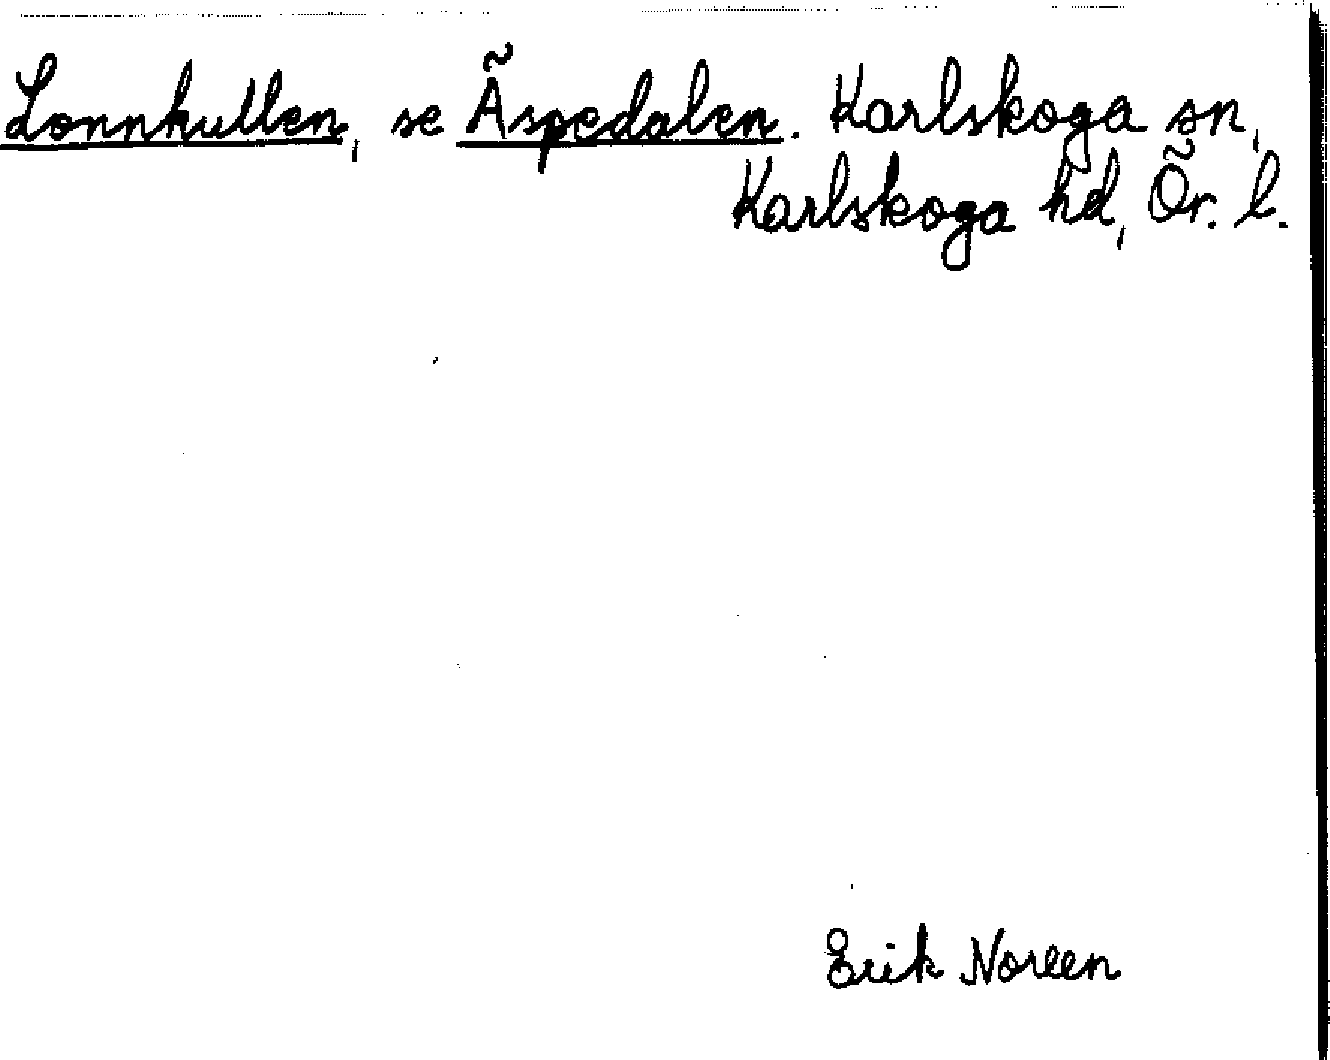 Lonnkullen, se Äspedalen. Karlskoga sn,
Karlskoga hd, Ör. l.
Erik Noreen